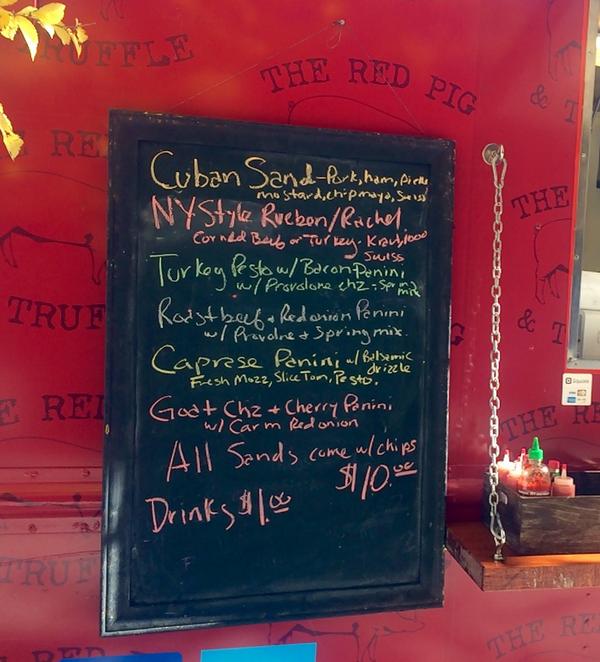 TRUFFLE
THE RED PIG
& T
E RE
THE
TRUF
PIG
& T
E RE
THE RE
TRU
RED
THE RE
Cuban Sand - Pork, ham, pickle
mostard, chip mayo, Swiss
NY Style Rueben/Rachel
Corned Beef or Turkey - Kraut, 1000
Swiss
Turkey Pesto w/ Bacon Panini
w/ Provolone chz - Spring
mix
Roast beef + Red onion Panini
w/ Provolne + Spring mix.
Caprese Panini w/ Balsamic
drizzle
Fresh Mozz, Slice Tom, Pesto.
Goat Chz + Cherry Panini
w/ Carm Red onion
All Sands come w/ chips
$10.00
Drinks $1.00